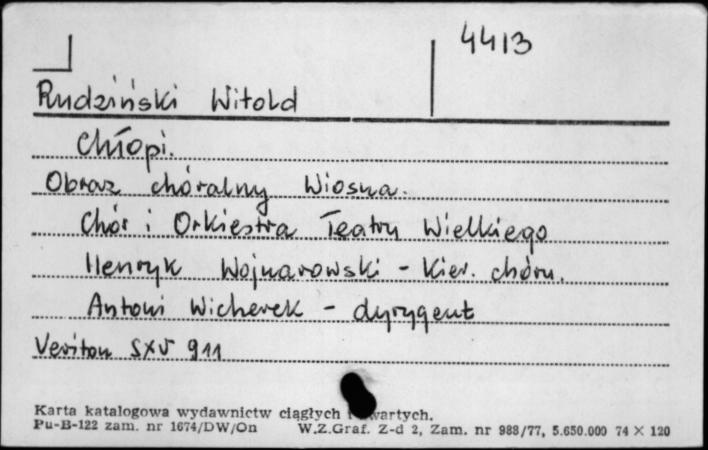 4413
Rudziński Witold
Chłopi.
Obraz chóralny Wiosna.
Chór i Orkiestra Teatru Wielkiego
Henryk Wojnarowski - kier. chóru.
Antoni Wicherek - dyrygent
Veriton SXV 911
Karta katalogowa wydawnictw ciągłych i zwartych.
Pu-B-122 zam. nr 1674/DW/On W.Z.Graf. Z-d 2, Zam. nr 988/77, 5.650.000 74 × 120